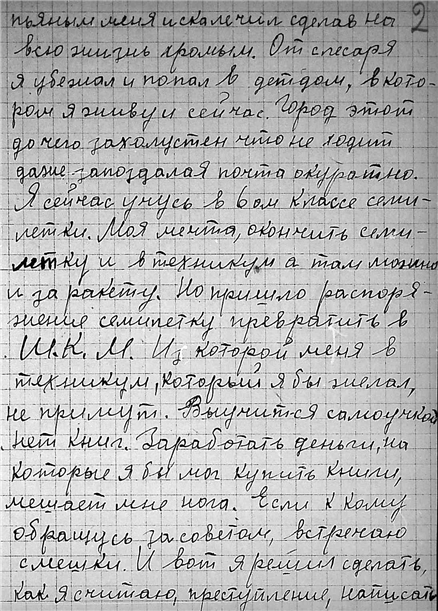 2
пьяным меня искалечил сделав на
всю жизнь хромым. От слесаря
я убежал и попал в детдом, в кото-
ром я живу и сейчас. Город этот
до чего захолустен что не ходит
даже запоздалая почта окуратно.
Я сейчас учусь в 6ом классе семи-
летки. Моя мечта, окончить семи-
летку и в техникум а там можно
и за ракету. Но пришло распоря-
жение семилетку превратить в
Ш.К.М. Из которой меня в
техникум, который я бы желал,
не примут. Выучится самоучкой
нет книг. Заработать деньги, на
которые я бы мог купить книги,
мешает мне нога. Если к кому
обращусь за советом, встречаю
смешки. И вот я решил сделать,
как я считаю, преступление, написать